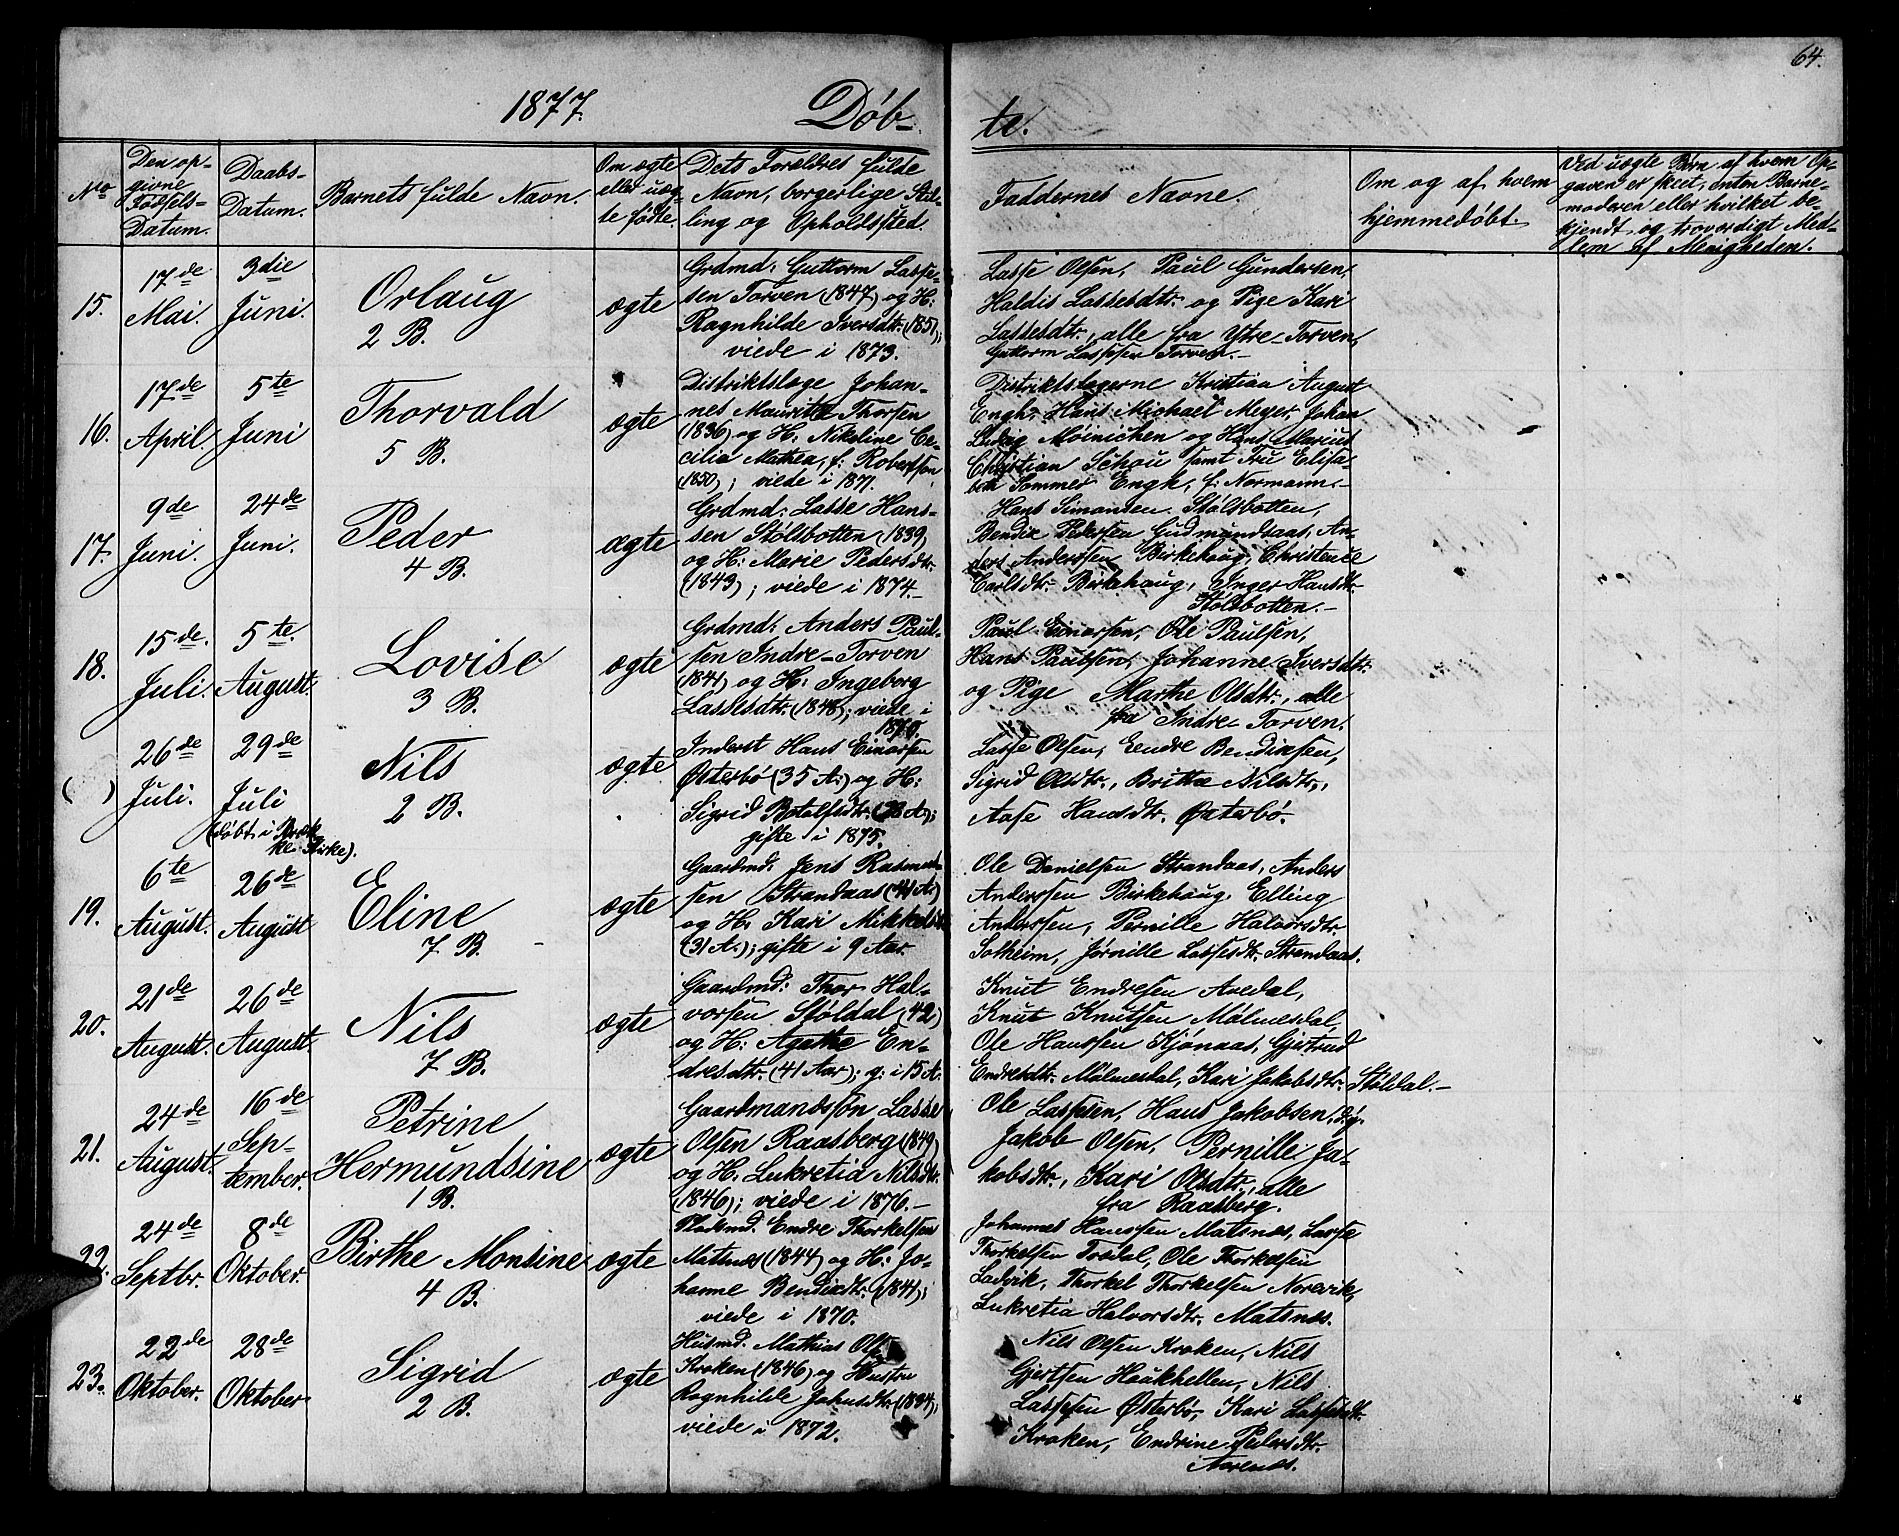 64.
1877. Døb-
te.
No
Den op-
givne
Fødsels-
Datum.
Daabs-
Datum.
Barnets fulde Navn.
Om ægte
eller uæg-
te fødte.
Dets Forældres fulde
Navn, borgerlige Stil-
ling og Opholdssted.
Faddernes Navne.
Om og af hvem
hjemmedøbt.
Ved uægte Børn af hvem Op-
gaven er skeet, enten Barne-
moderen eller hvilket be-
kjendt og troværdigt Med-
lem af Menigheden.
15.
17de
Mai.
3die
Juni.
Orlaug
2 B.
ægte
Grdmd: Guttorm Lasse-
sen Torven (1847) og H:
Ragnhilde Iversdtr. (1851);
viede i 1873.
Lasse Olsen, Paul Gundersen,
Haldis Lassesdtr. og Pige Kari
Lassesdtr., alle fra Ytre-Torven,
Guttorm Lassesen Torven.-
16.
17de
April.
5te
Juni
Thorvald
5 B.
ægte
Distriktslæge Johan-
nes Mauritz Thorsen
(1836) og H: Nikoline Ce-
cilia Mathea, f: Robertson
(1850); viede i 1871.
Distriktslægerne Kristian August
Engh, Hans Michael Meyer, Johan
Ludvig Møinichen og Hans Marius
Christian Schou samt Fru Elisa-
beth Sommer Engh, f: Normann.-
17.
9de
Juni.
24de
Juni.
Peder
4 B.
ægte
Grdmd: Lasse Hans-
sen Stølsbotten (1839)
og H: Marie Pedersdtr.
(1843); viede i 1874.-
Hans Simonsen Stølsbotten,
Bendix Pedersen Gudmundsaas, An-
ders Anderssen Birkehaug, Christence
Carlsdtr. Birkehaug, Inger Hansdtr.
Stølsbotten.-
18.
15de.
Juli.
5te.
August.
Lovise
3 B.
ægte
Grdmd: Anders Paul-
sen Indre-Torven
(1841) og H: Ingeborg
Lassesdtr. (1848); viede i
1870.
Paul Einarsen, Ole Paulsen,
Hans Paulsen, Johanne Iversdtr.
og Pige Marthe Olsdtr., alle
fra Indre-Torven.
( )
26de
Juli.
29de
Juli
(døbt i Bræk-
ke Kirke).
Nils
2 B.
ægte
Inderst Hans Einarsen
Østerbø (35 A.) og H:
Sigrid Botolfsdtr. (28 A.);
gifte i 1875.
Lasse Olsen, Endre Bendixsen,
Sigrid Olsdtr., Britha Nilsdtr.,
Aase Hansdtr. Østerbø.
19.
6te
August.
26de
August
Eline
7 B.
ægte
Gaardmd: Jens Rasmus-
sen Strandaas (41 A.)
og H: Kari Mikkelsdtr.
(31 A.); gifte i 9 Aar.
Ole Danielsen Strandaas, Anders
Anderssen Birkehaug, Elling
Anderssen, Pernille Halvorsdtr.
Solheim, Jørnille Lassesdtr. Strandaas.
20.
21de
August.
26de
August.
Nils
7 B.
ægte
Gaardmd: Thor Hal-
vorsen Støldal (42)
og H: Agathe En-
dresdtr. (41 Aar); g: i 15 A.
Knut Endresen Avedal,
Knut Knutsen Målmesdal,
Ole Hanssen Kjønaas, Gjertrud
Endresdtr. Målmesdal, Kari Jakobsdtr. Støldal.-
21.
24de
August.
16de
Sep-
tember.
Petrine
Hermundsine
1 B.
ægte
Gaardmandssøn Lasse
Olsen Raasberg (1849)
og H: Lukretia Nilsdtr.
(1846); viede i 1876.-
Ole Lassesen, Hans Jakobsen,
Jakob Olsen, Pernille Ja-
kobsdtr., Kari Olsdtr., alle
fra Raasberg.
22.
24de
Septbr.
8de
Oktober.
Birthe Monsine
4 B.
ægte
Pladsmd. Endre Thorkelsen
Matsnes (1844) og H: Jo-
hanne Bendixdtr. (1841);
viede i 1870.
Johannes Hanssen Matsnes, Lasse
Thorkelsen Tredal, Ole Thorkelsen
Ladvik, Thorkel Thorkelsen Norevik,
Lukretia Halvorsdtr. Matsnes.
23.
22de
Oktober.
28de
Oktober
Sigrid
2 B.
ægte
Husmd. Mathias Olsen
Kroken (1846) og Hustru
Ragnhilde Johnsdtr. (1834);
viede i 1872.
Nils Olsen Kroken, Nils
Gjertsen Heukhellen, Nils
Lassesen Østerbø, Kari Lassesdtr.
Kroken, Endrine Pedersdtr.